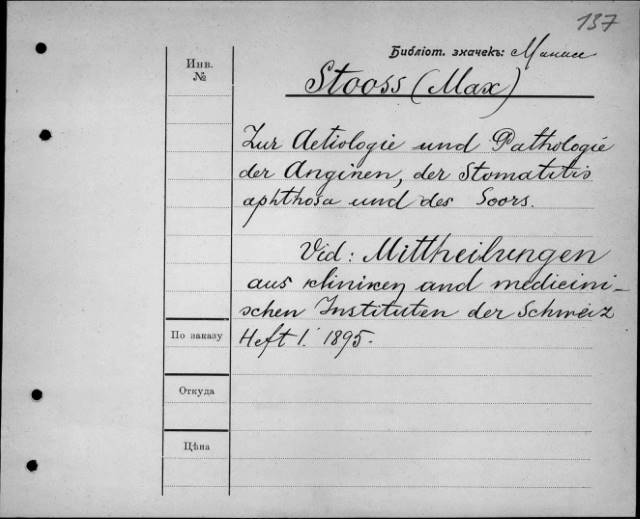 137
Библіот. значекъ:
Инв.
№
Stooss (Max)
Zur Aetiologie und Pathologie
der Anginen, der Stomatitis
aphthosa und des Soors.
Vid: Mittheilungen
aus Kliniken and medicini-
schen Instituten der Schweiz
По заказу
Heft 1. 1895.
Откуда
Цѣна